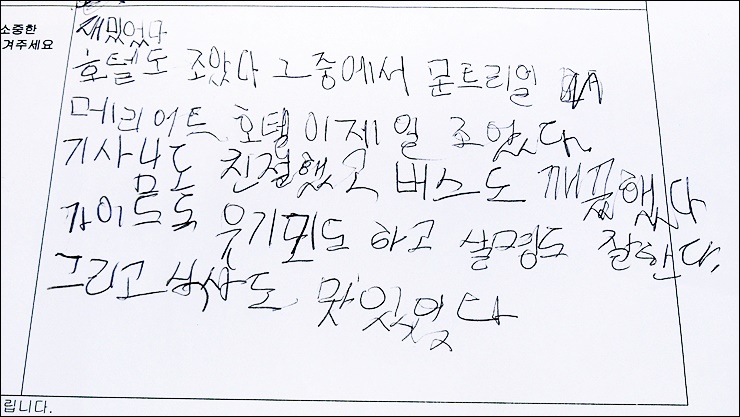 소중한
겨주세요
재밌었다
호텔도 조았다 그중에서 몬트리얼
메리어트 호텔이제일 조었다.
기사님도 친절했고 버스도 깨끗했다
가이드도 웃기기도 하고 설명도 잘한다.
그리고 식사도 맛있었다
립니다.